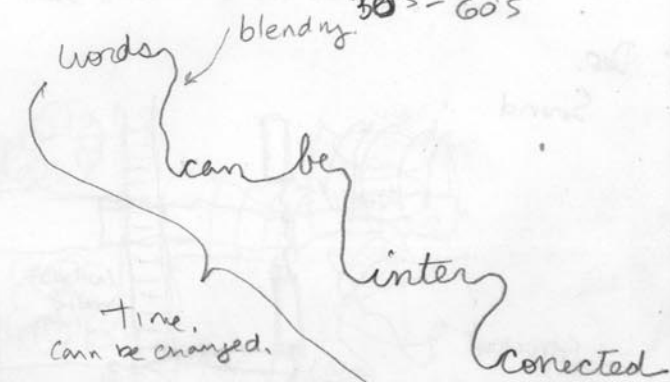 50's - 60's
blending.
words
can be
inter
conected
Time,
cann be changed.